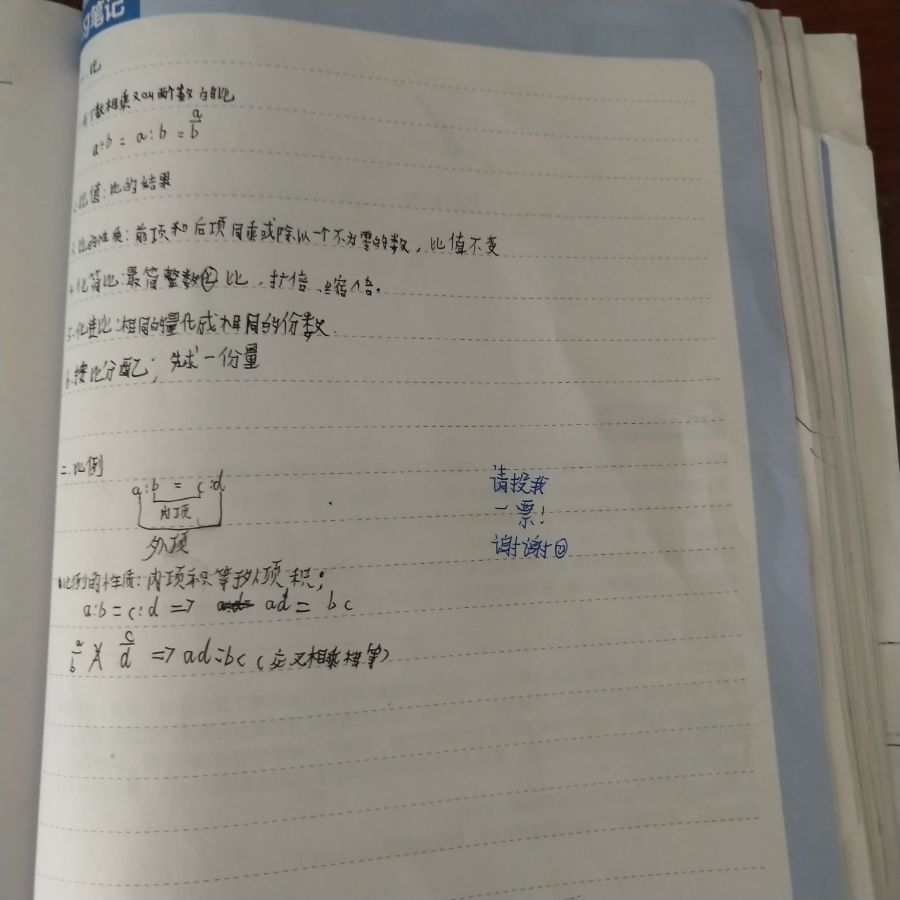 习笔记
一.比
两个数相乘又叫两个数的比
a÷b = a:b = a/b
2.比值:比的结果
3.比的性质:前项和后项同乘或除以一个不为零的数,比值不变
4.化简比:最简整数比,扩倍,缩倍。
5.化连比:相同的量化成相同的份数.
6.按比分配;先求一份量
二.比例
a:b = c:d
内项
外项
请投我
一票!
谢谢
1.比例的性质:内项积等于外项积;
a:b=c:d => ad = bc
a/b X c/d => ad=bc(交叉相乘相等)